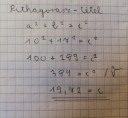 Pithagorasz-tétel
a² + b² = c²
10² + 17² = c²
100 + 289 = c²
389 = c² /√
19,72 = c